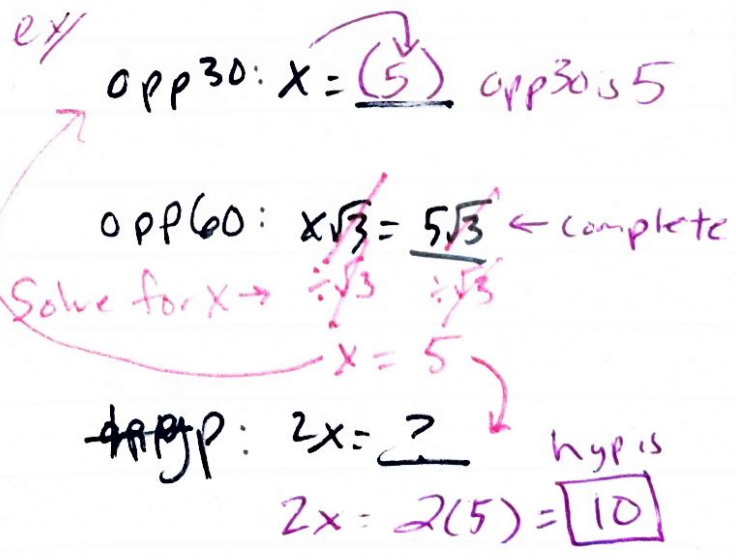 ex/
opp30: x = (5) opp30 is 5
opp60: x√3 = 5√3 ← complete
Solve for x → ÷√3 ÷√3
x = 5
hyp: 2x = ?
hyp is
2x = 2(5) = 10